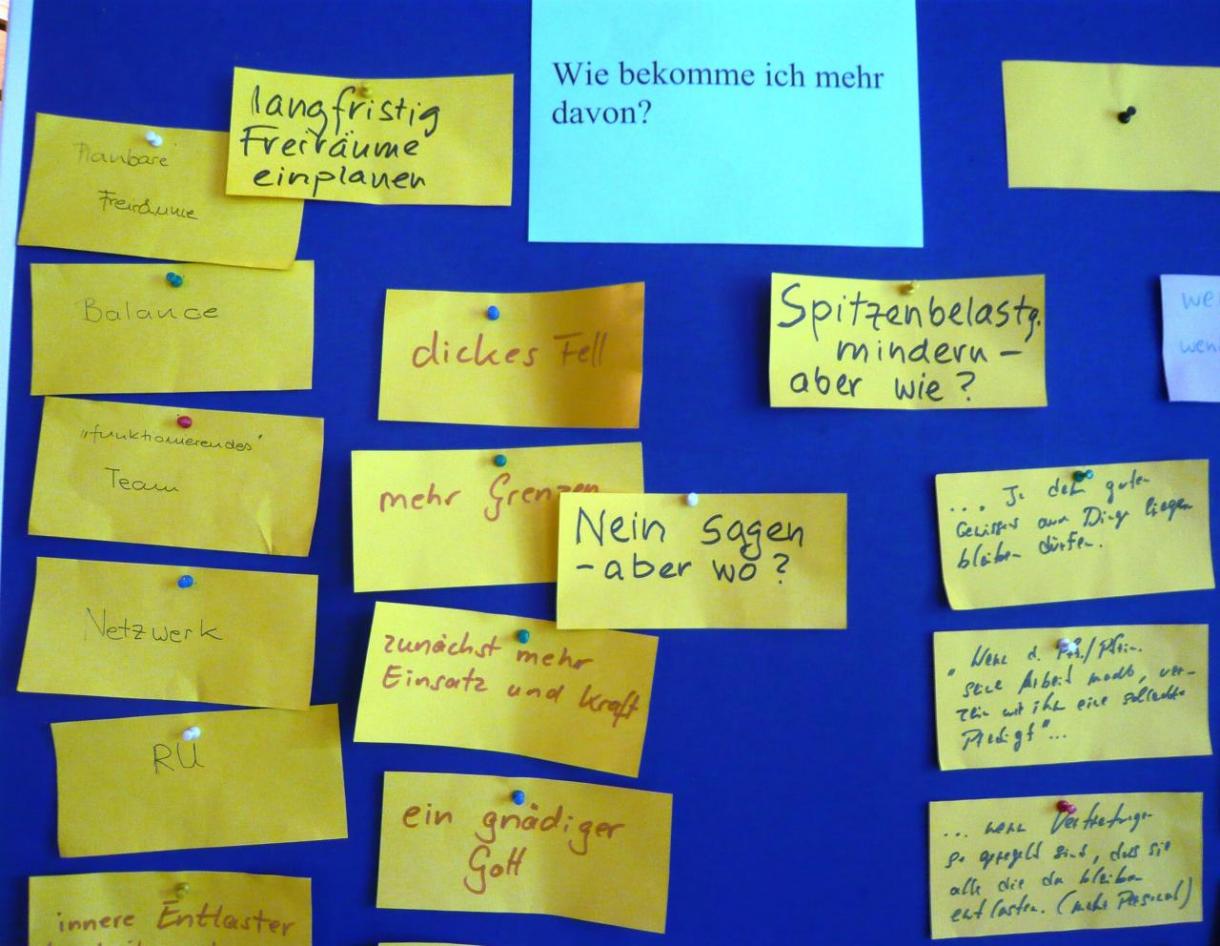 Wie bekomme ich mehr
davon?
langfristig
Freiräume
einplanen
Planbare
Freiräume
Balance
"funktionierendes"
Team
Netzwerk
RU
innere Entlaster
dickes Fell
mehr Grenzen
Nein sagen
- aber wo?
zunächst mehr
Einsatz und Kraft
ein gnädiger
Gott
Spitzenbelastg.
mindern -
aber wie?
we
wen
gute
Gewissens Dinge liegen
bleiben dürfen.
"Wenn d. Pfr./Pfrin.
seine Arbeit macht, ver-
wir ihm eine schlechte
Predigt"...
... wenn Vertretungen
so geregelt sind, dass sie
alle die da bleiben
entlasten. (mehr Personal)